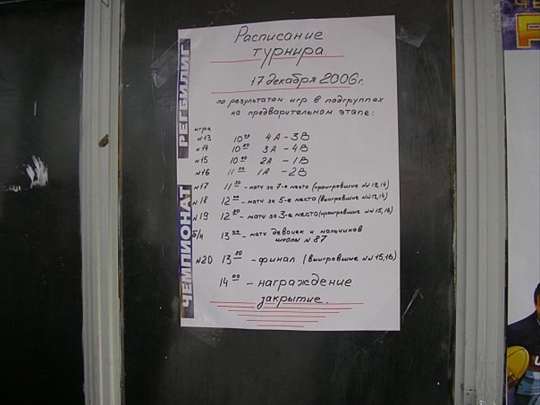 Расписание
турнира
17 декабря 2006г.
по результатам игр в подгруппах
на предварительном этапе:
игра
N13 10 00 4А – 3В
N14 10 00 3А – 4В
N15 10 2А – 1В
N16 11 1А – 2В
N17 11 – матч за 7-е место (проигравшие NN 13,14)
N18 12 – матч за 5-е место (выигравшие NN 13,14)
N19 12 – матч за 3-е место (проигравшие NN 15,16)
Б/Н 13 – матч девочек и мальчиков
школы N 87
N20 13 – финал (выигравшие NN 15,16)
14 00 – награждение
закрытие.
ЧЕМПИОНАТ РЕГБИЛИГ